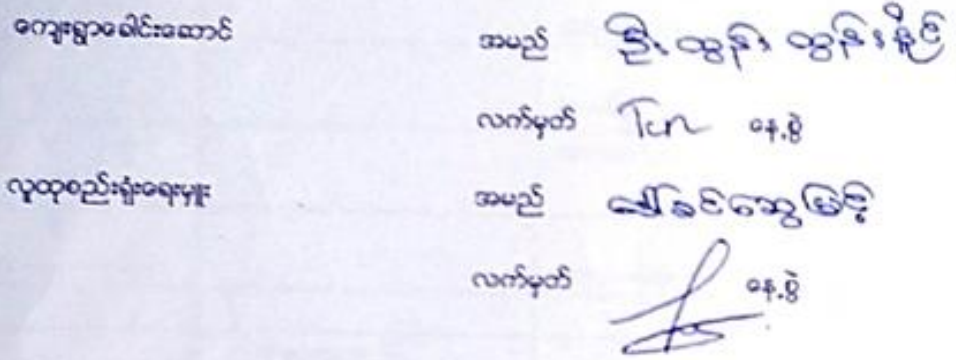 ကျေးရွာခေါင်းဆောင် အမည် ဦးထွန်းထွန်းနိုင်
လက်မှတ် Tun နေ့စွဲ
လူထုစည်းရုံးရေးမှူး အမည် ဒေါ်ခင်ဆွေမြင့်
လက်မှတ် နေ့စွဲ